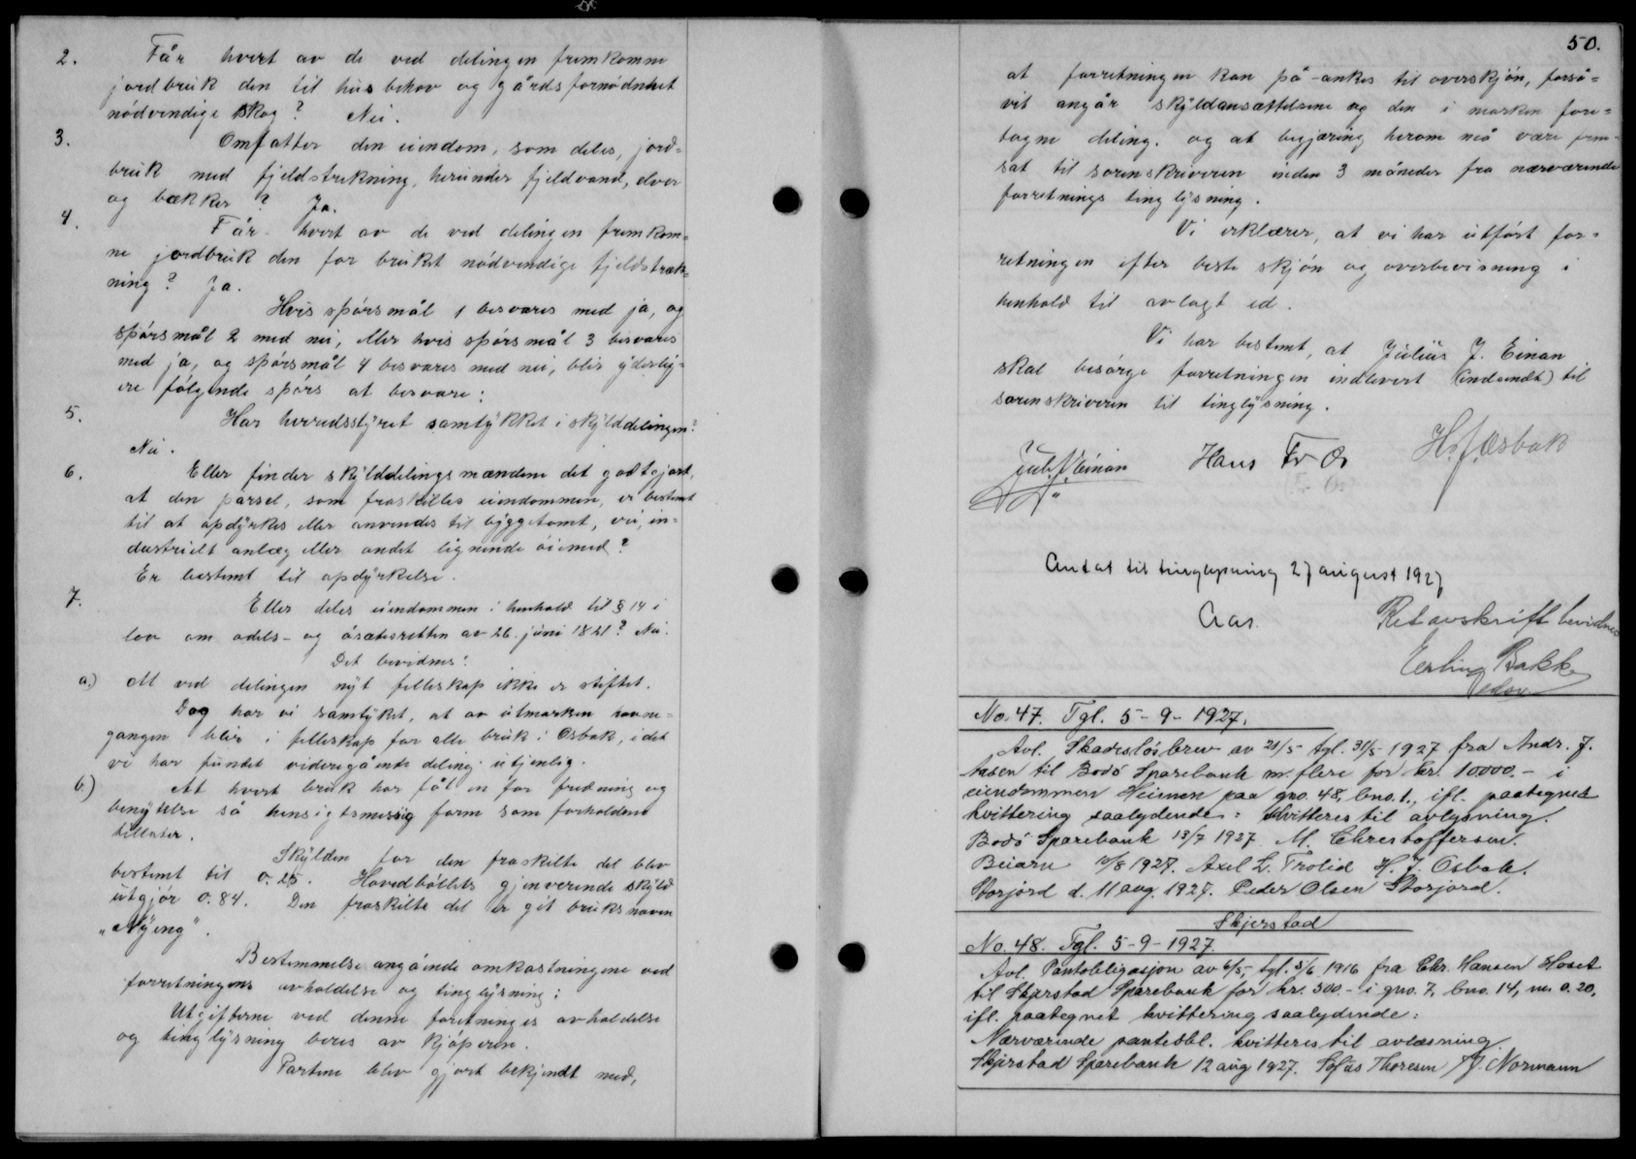 2. Får hvert av de ved delingen fremkomne
jordbruk den til husbehov og gårdsfornødenhet
nödvendige skog? Nei.
3. Omfatter den eiendom, som deles, jord=
bruk med fjeldstrekning, herunder fjeldvand, elver
og bækker? Ja.
4. Får hvert av de ved delingen fremkom=
ne jordbruk den for bruket nödvendige fjeldstræk=
ning? Ja.
Hvis spörsmål 1 besvares med ja, og
spörsmål 2 med nei, eller hvis spörsmål 3 besvares
med ja, og spörsmål 4 besvares med nei, blir yderlig=
ere fölgende spörs at besvare:
5. Har herredsstyret samtykket i skylddelingen?
Nei.
6. Eller finder skylddelingsmændene det godtgjort,
at den parsel, som fraskilles eiendommen, er bestemt
til at opdyrkes eller anvendes til byggetomt, vei, in=
dustrielt anlæg eller andet lignende öiemed?
Er bestemt til opdyrkelse.
7. Eller deles eiendommen i henhold til § 14 i
lov om odels- og åsætesretten av 26. juni 1821? Nei.
Det bevidnes:
a.) At ved delingen nyt felleskap ikke er stiftet.
Dog har vi samtykket, at av utmarken havne=
gangen blir i felleskap for alle bruk i Osbak, idet
vi har fundet videregående deling utjenlig.
b.) At hvert bruk har fåt en for fredning og
benyttelse så hensigtsmessig form som forholdene
tillater.
Skylden for den fraskilte del blev
bestemt til 0.25. Hovedböllets gjenværende skyld
utgjör 0.84. Den fraskilte del er git bruksnavn
"Nyeng".
Bestemmelse angående omkostningene ved
forretningens avholdelse og tinglysning:
Utgifterne ved denne forretninges avholdelse
og tinglysning beres av kjöperen.
Partene blev gjort bekjendt med,
50.
at forretningen kan på-ankes til overskjön, forså=
vit angår skyldansættelsene og den i marken fore=
tagne deling. og at begjæring herom må være frem=
sat til sorenskriveren inden 3 måneder fra nærværende
forretnings tinglysning.
Vi erklærer, at vi har utfört for=
retningen efter beste skjön og overbevisning i
henhold til avlagt ed.
Vi har bestemt, at Julius J. Einan
skal besörge forretningen indlevert (indsendt) til
sorenskriveren til tinglysning.
Jul. J. Einan Hans Fr Os H. J. Osbak
Antat til tinglysning 27 august 1927
Aas.
Ret avskrift bevidnes
Erling Bakke
No. 47. Tgl. 5-9-1927.
Avl. Skadeslösbrev av 21/5 tgl. 31/5-1927 fra Andr. J.
til Bodö Sparebank m. flere for kr. 10000.- i
eiendommen Heimen paa gno. 48, bno. 1., ifl. paategnet
kvittering saalydende: Kvitteres til avlysning.
Bodö Sparebank 13/7 1927. M. Christoffersen.
Beiarn 10/8 1927. Axel L. Trolid H. J. Osbak.
Storjord d. 11 aug. 1927. Peder Olsen Storjord.
Skjerstad
No. 48. Tgl. 5-9-1927.
Avl. Pantobligasjon av 6/5, tgl. 5/6 1916 fra Chr. Hansen Hoset
til Skjerstad Sparebank for kr. 500.- i gno. 7, bno. 14, m. 0.20,
ifl. paategnet kvittering saalydende:
Nærværende pantobl. kvitteres til avlæsning.
Skjerstad Sparebank 12 aug 1927. Sofus Thoresen J. Normann